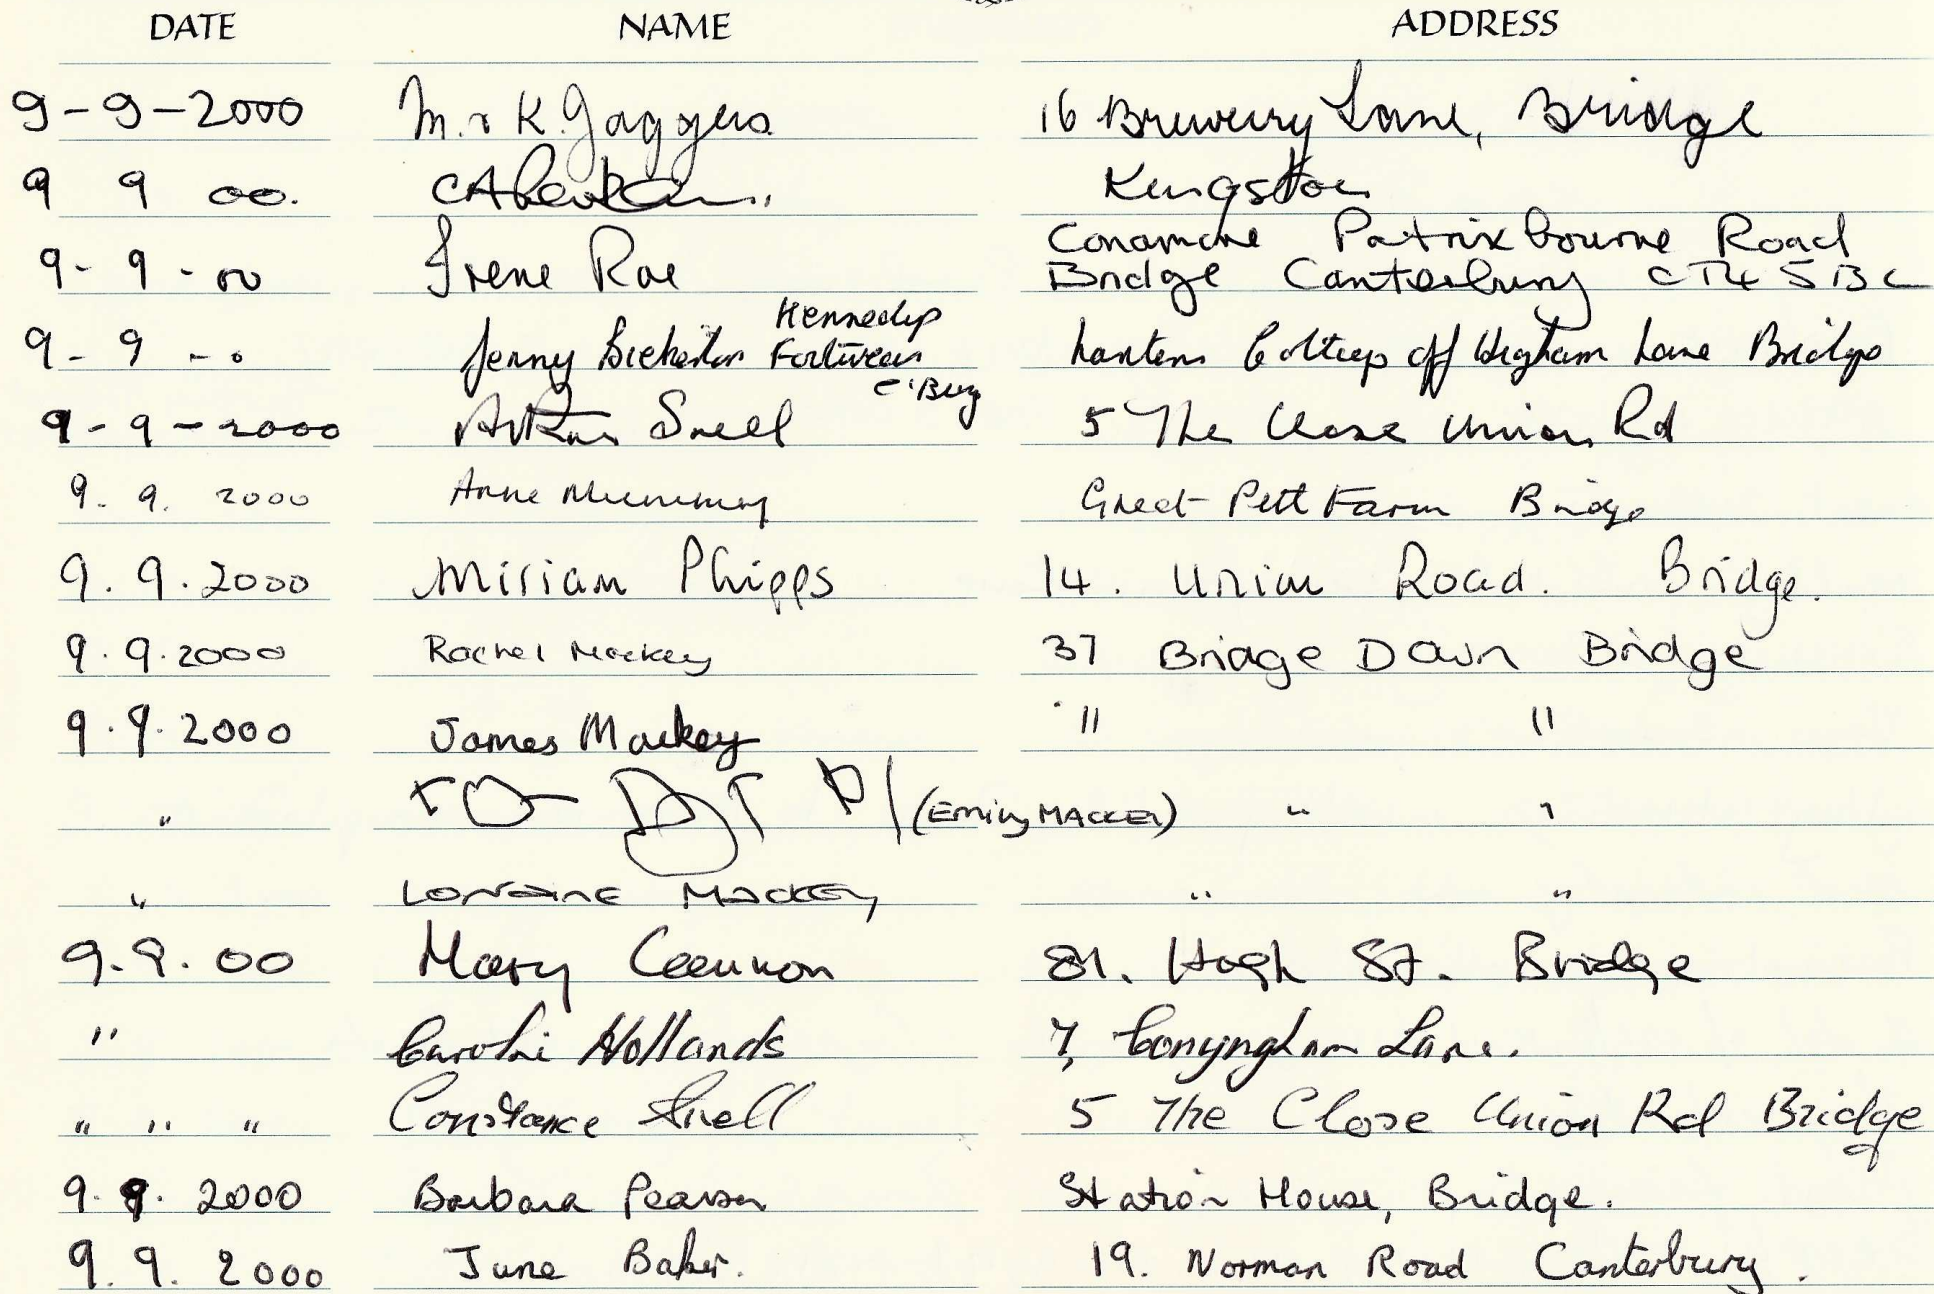 DATE NAME ADDRESS
9-9-2000 M. & K. Jaggers 16 Brewery Lane, Bridge
9 9 00. Kingston
9-9-00 Irene Rae Conamore Patrixbourne Road
Bridge Canterbury CT4 5BL
Kennedy
9-9-0 Jenny off Higham Lane Bridge
C'Bury
9-9-2000 Arthur Snell 5 The Close Union Rd
9. 9. 2000 Anne Mummery Great Pett Farm Bridge
9.9.2000 Miriam Phipps 14. Union Road. Bridge.
9.9.2000 Rachel Mackey 37 Bridge Down Bridge
9.9.2000 James Mackey " "
" (Emily MACKEY) " "
" LORRAINE MACKEY " "
9.9.00 Mary 81. High St. Bridge
" Hollands 7, Conyngham Lane.
" " " Constance Snell 5 The Close Union Rd Bridge
9.9. 2000 Barbara Pearson Station House, Bridge.
9.9. 2000 June Baker. 19. Norman Road Canterbury.